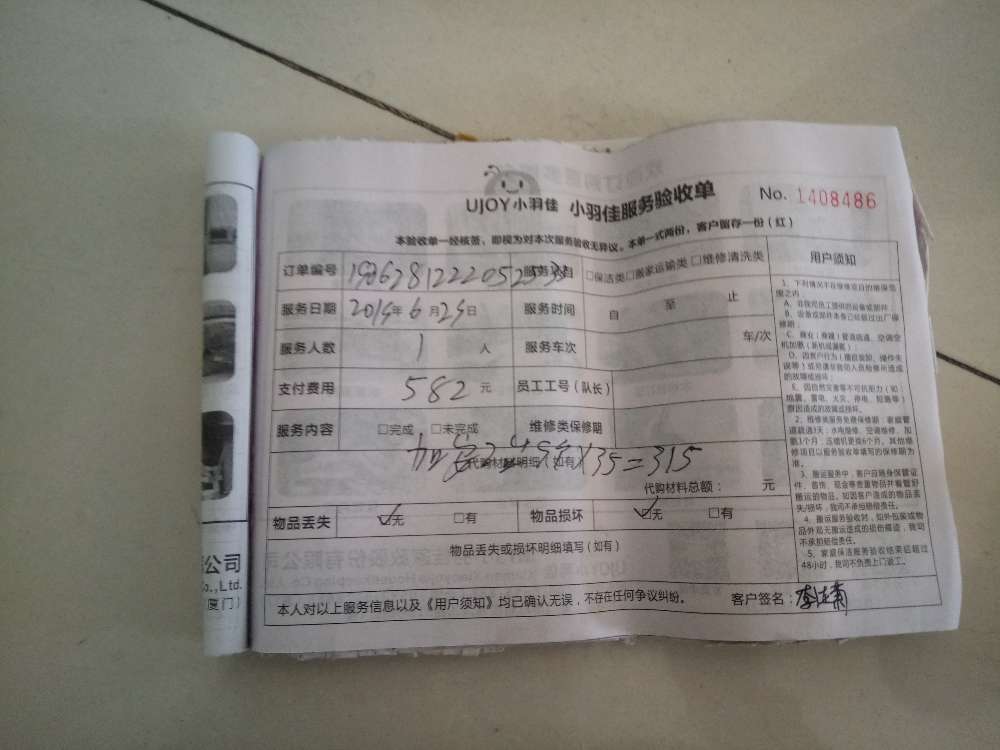 UJOY小羽佳 小羽佳服务验收单 No. 1408486
本验收单一经核签，即视为对本次服务验收无异议。本单一式两份，客户留存一份（红）
订单编号 服务项目 □保洁类□搬家运输类 □维修清洗类
服务日期 年6月 日 服务时间 自 至 止
服务人数 1 人 服务车次 车/次
支付费用 582 元 员工工号（队长）
服务内容 □完成 □未完成 维修类保修期
代购材料明细（如有） ×35=315
代购材料总额： 元
物品丢失 ☑无 □有 物品损坏 ☑无 □有
物品丢失或损坏明细填写（如有）
本人对以上服务信息以及《用户须知》均已确认无误，不存在任何争议纠纷。 客户签名：
用户须知
1、下列情况不在维修项目的维保范
围之内：
A、非我司员工提供的设备或部件；
B、设备或部件本身已经超过出厂保
修期；
D、因客户行为（擅自装卸、操作失
的故障或损坏；
E、因自然灾害等不可抗拒力（如
地震、雷电、火灾、停电、短路等）
原因造成的故障或损坏。
2、维修类服务免费保修期：家庭管
修项目以服务验收单填写的保修期为
准。
3、搬运服务中，客户应随身保管证
件、首饰、现金等贵重物品并看管好
搬运的物品。如因客户造成的物品丢
失/损坏，我司不承担赔偿责任。
4、搬运服务验收时，如外包装或物
品外观无搬运造成的损伤痕迹，我司
不承担赔偿责任。
5、家庭保洁服务验收结束后超过
48小时，我司不负责上门返工。
公司
Co.,Ltd.
（厦门）